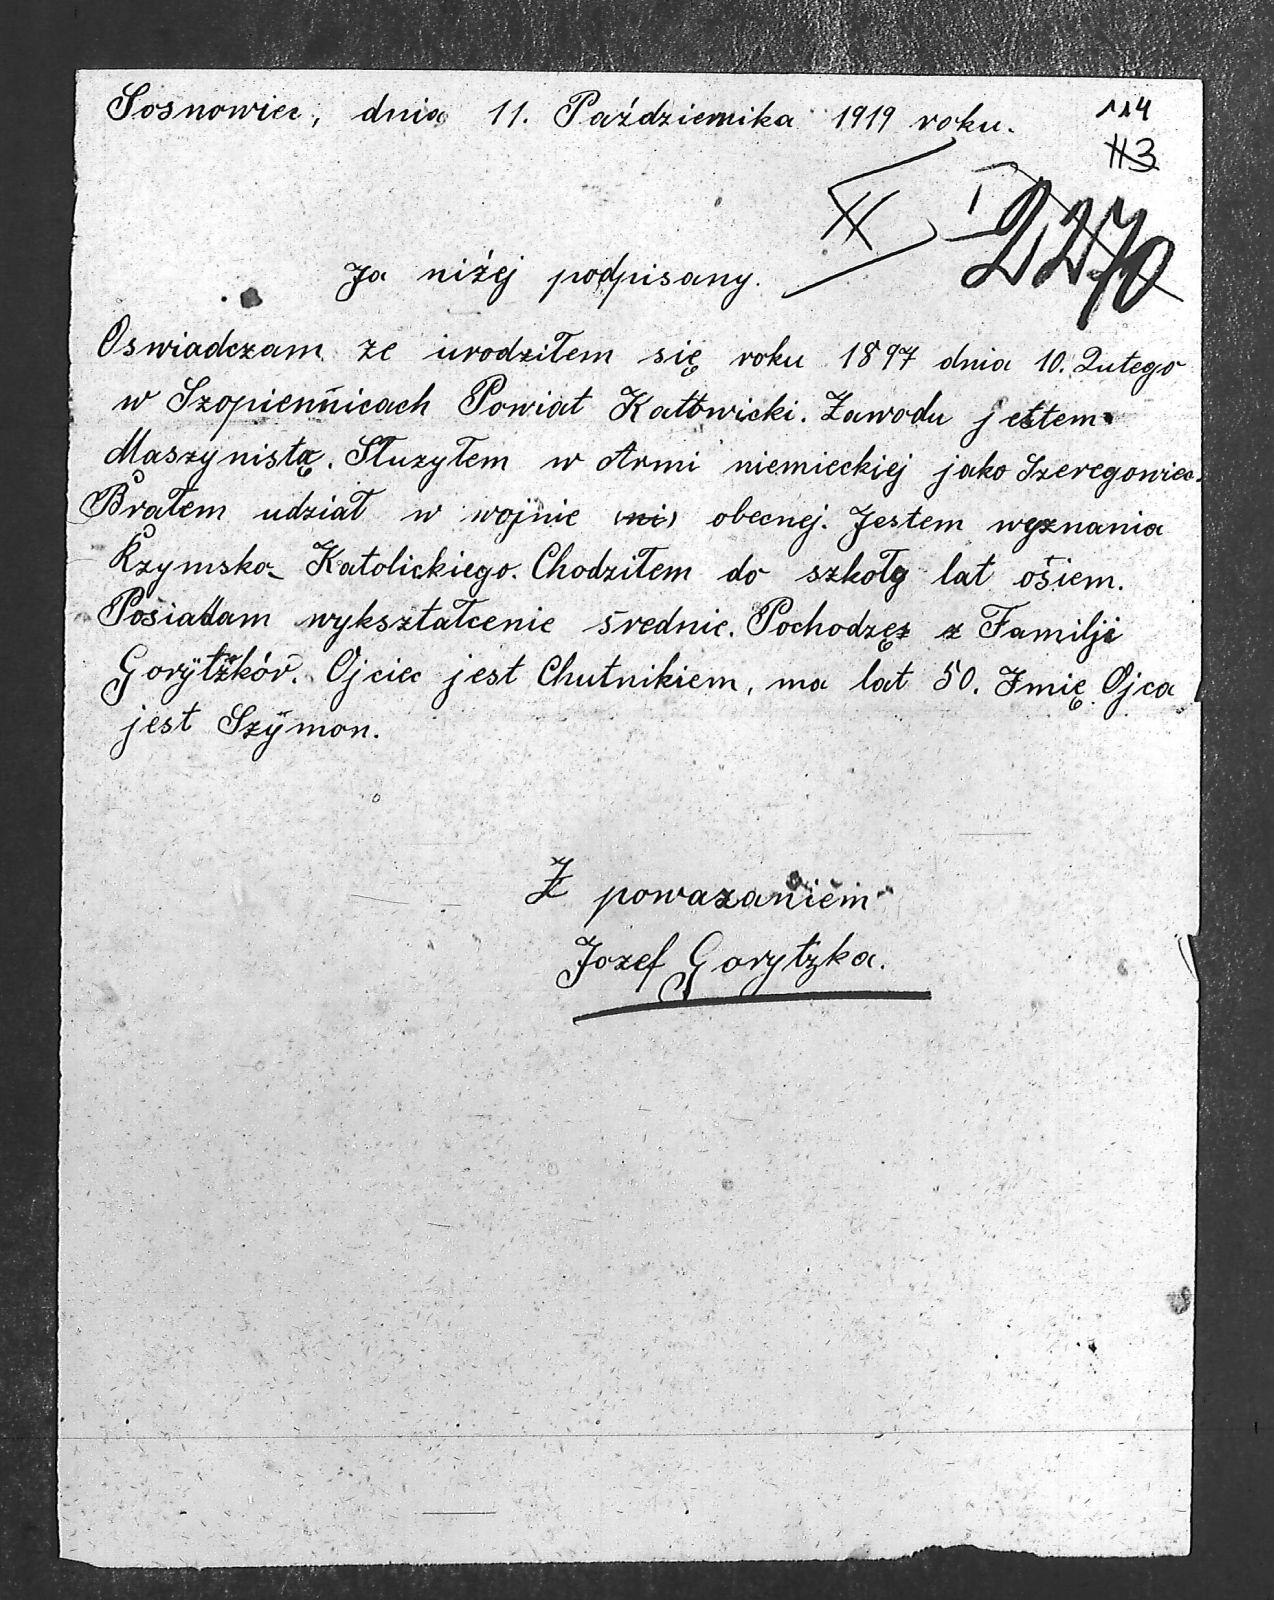 Sosnowiec, dnia 11. Października 1919 roku.
114
113
II
I 2270
Ja niżej podpisany.
Oswiadczam ze urodziłem się roku 1897 dnia 10. Lutego
w Szopiennicach Powiat Katowicki. Zawodu jestem
Maszynistą. Służyłem w Armi niemieckiej jako Szeregowiec.
Brałem udział w wojnie (ni) obecnej. Jestem wyznania
Rzymsko- Katolickiego. Chodziłem do szkoły lat ośiem.
Pośiadam wykształcenie średnie. Pochodzę z Familji
Gorytzków. Ojciec jest Chutnikiem, ma lat 50. Imię Ojca
jest Szymon.
Z powazaniem
Jozef Gorytzka.